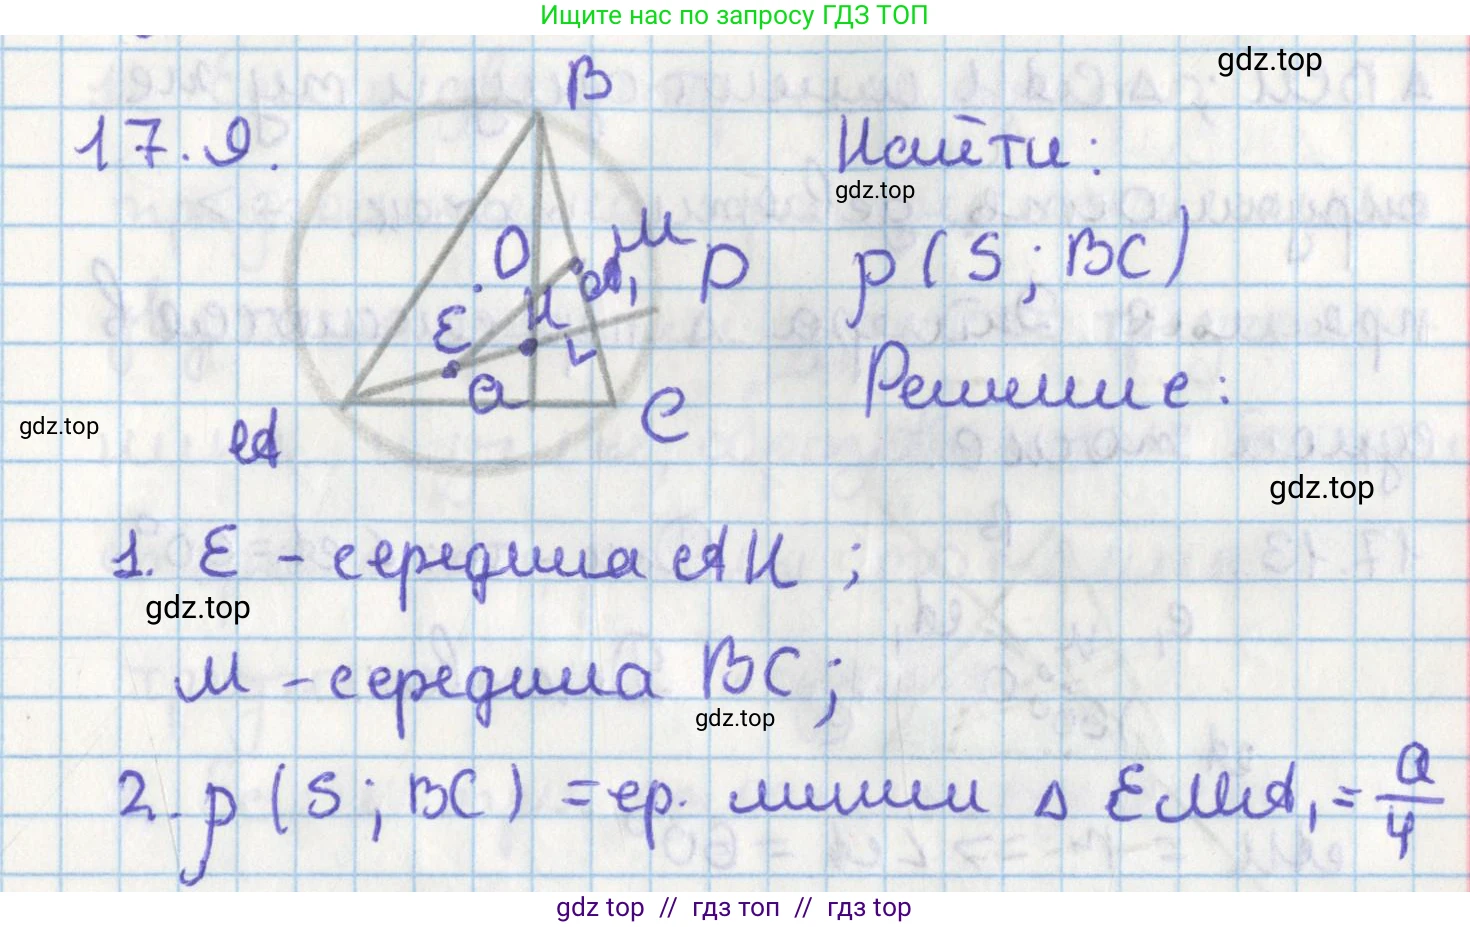 Ищите нас по запросу ГДЗ ТОП
gdz.top
17.9.
Найти:
gdz.top
B
O
M
D
A₁
E
H
L
a
C
A
ρ(S; BC)
Решение:
gdz.top
gdz.top
1. E - середина AH;
gdz.top
M - середина BC;
gdz.top
2. ρ(S; BC) = ср. линии △ EMA₁ = a/4
gdz top // гдз топ // гдз top